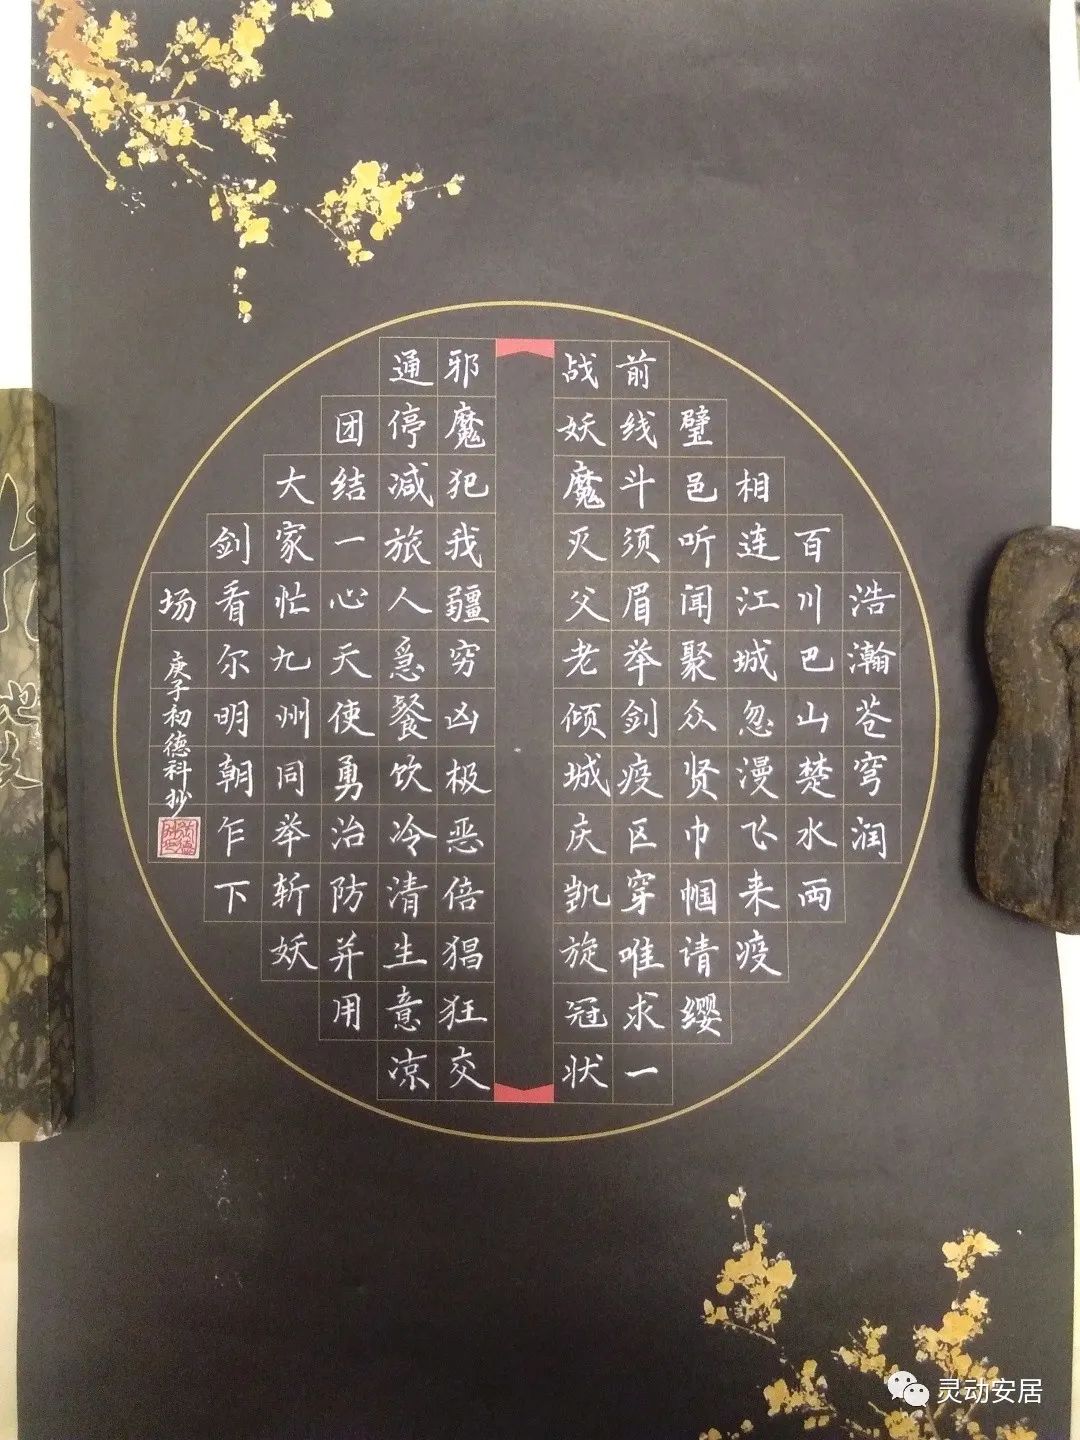 浩瀚苍穹润
百川巴山楚水两
相连江城忽漫飞来疫
璧邑听闻聚众贤巾帼请缨
前线斗须眉举剑疫区穿唯求一
战妖魔灭父老倾城庆凯旋冠状
邪魔犯我疆穷凶极恶倍猖狂交
通停减旅人急餐饮冷清生意凉
团结一心天使勇治防并用
大家忙九州同举斩妖
剑看尔明朝乍下
场
庚子初德科抄
灵动安居